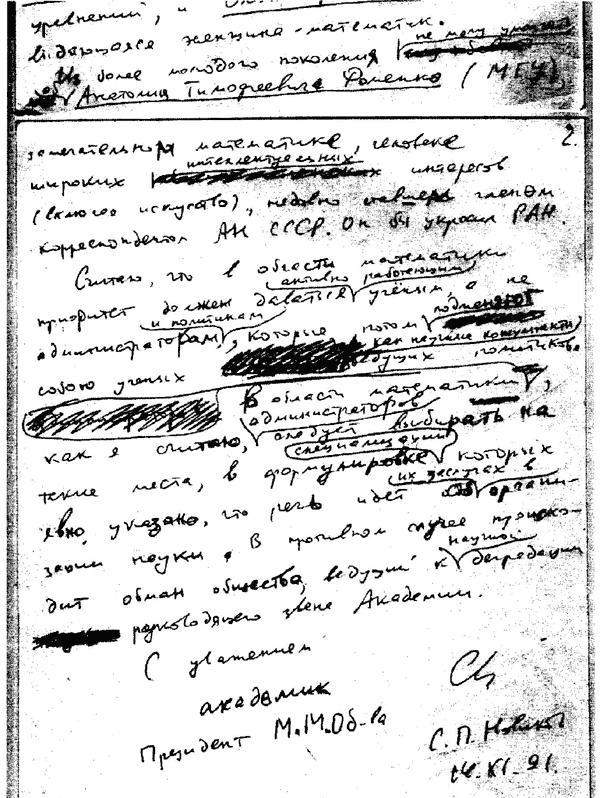 уравнений, и
выдающаяся женщина-математик.
Из более молодого поколения не могу умолчать
Анатолия Тимофеевича Фоменко (МГУ),
2.
замечательном математике, человеке
интеллектуальных
широких интересов
(включая искусство), недавно ставшем членом
корреспондентом АН СССР. Он бы украсил РАН.
Считаю, что в области математики
активно работающим
приоритет должен даваться учёным, а не
и политикам подменяют
администраторам, которые потом
как научные консультанты
собою ученых ведущих политиков.
В области математики,
администраторов
как я считаю, следует выбирать на
специализации
такие места, в формулировке которых
их заслугах в
явно указано, что речь идет об органи-
зации науки. В противном случае происхо-
научной
дит обман общества, ведущий к деградации
руководящего звена Академии.
С уважением
академик
Президент М.М.Об-ва
С.П. Новиков
14.XI.91.